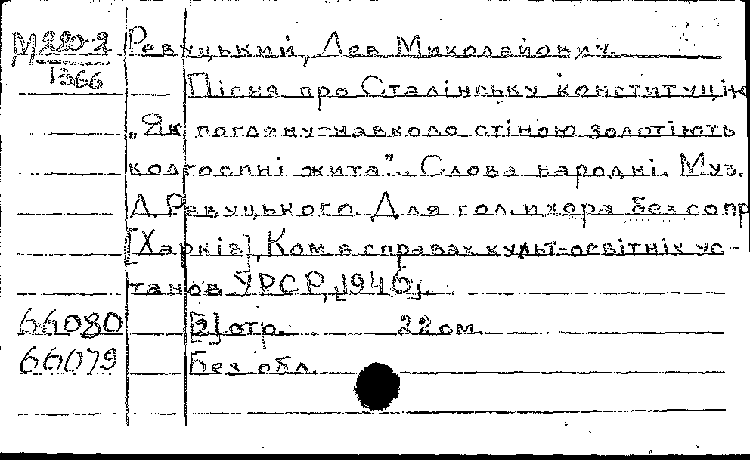 М 220-2 Ревуцький, Лев Миколайович.
1366
Пісня про Сталінську конституцію
„Як погляну навколо стіною золотіють
колгоспні жита". Слова народні. Муз.
Л. Ревуцького. Для гол. и хора без сопр
[Харків], Ком в справах культ-освітніх ус-
танов УРСР, [1946].
66080 [2] стр. 22 см.
66079 Без обл.